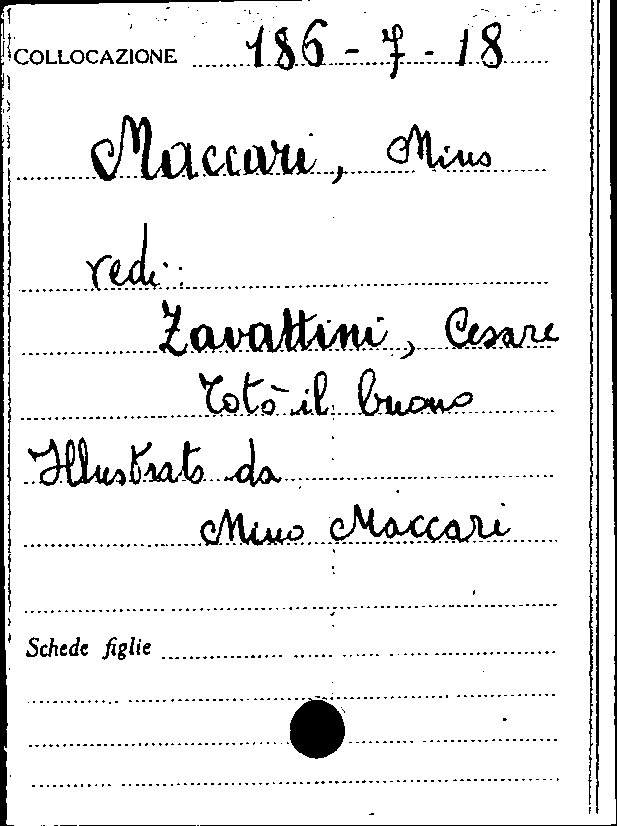 COLLOCAZIONE 186-7-18
Maccari, Mino
vedi:
Zavattini, Cesare
Totò il buono
Illustrato da
Mino Maccari
Schede figlie